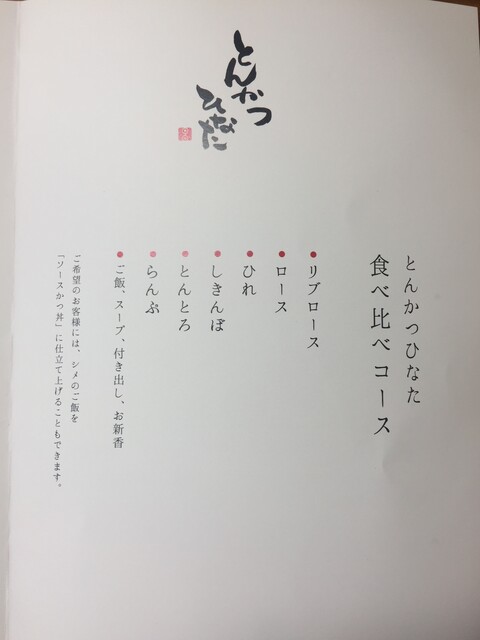 とんかつ
ひなた
とんかつひなた
食べ比べコース
●リブロース
●ロース
●ひれ
●しきんぼ
●とんとろ
●らんぷ
●ご飯、スープ、付き出し、お新香
ご希望のお客様には、シメのご飯を
「ソースかつ丼」に仕立て上げることもできます。